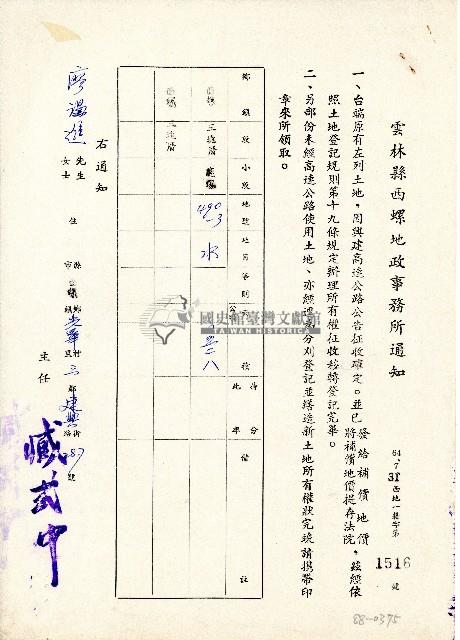 雲林縣西螺地政事務所通知
64.7.31西地一登字第1516號
一、台端原有左列土地,因興建高速公路公告征收確定。並已發給補償地價
將補償地價提存法院,茲經依
照土地登記規則第十九條規定辦理所有權征收移轉登記完畢。
二、另部份未經高速公路使用土地、亦經逕割分割登記並繕造新土地所有權狀完竣請携帶印
章來所領取。
鄉鎮 段 小段 地號 地目 等則 面積 持分 備註
西螺 三塊厝 490-3 水
西螺 三塊厝
右通知
廖 進 先生
女士
住 縣市 西螺 鄉鎮 光華 村里 三鄰 建興 街路 87號
主任
臧武中
國史館臺灣文獻館
TAIWAN HISTORICA
88-0375